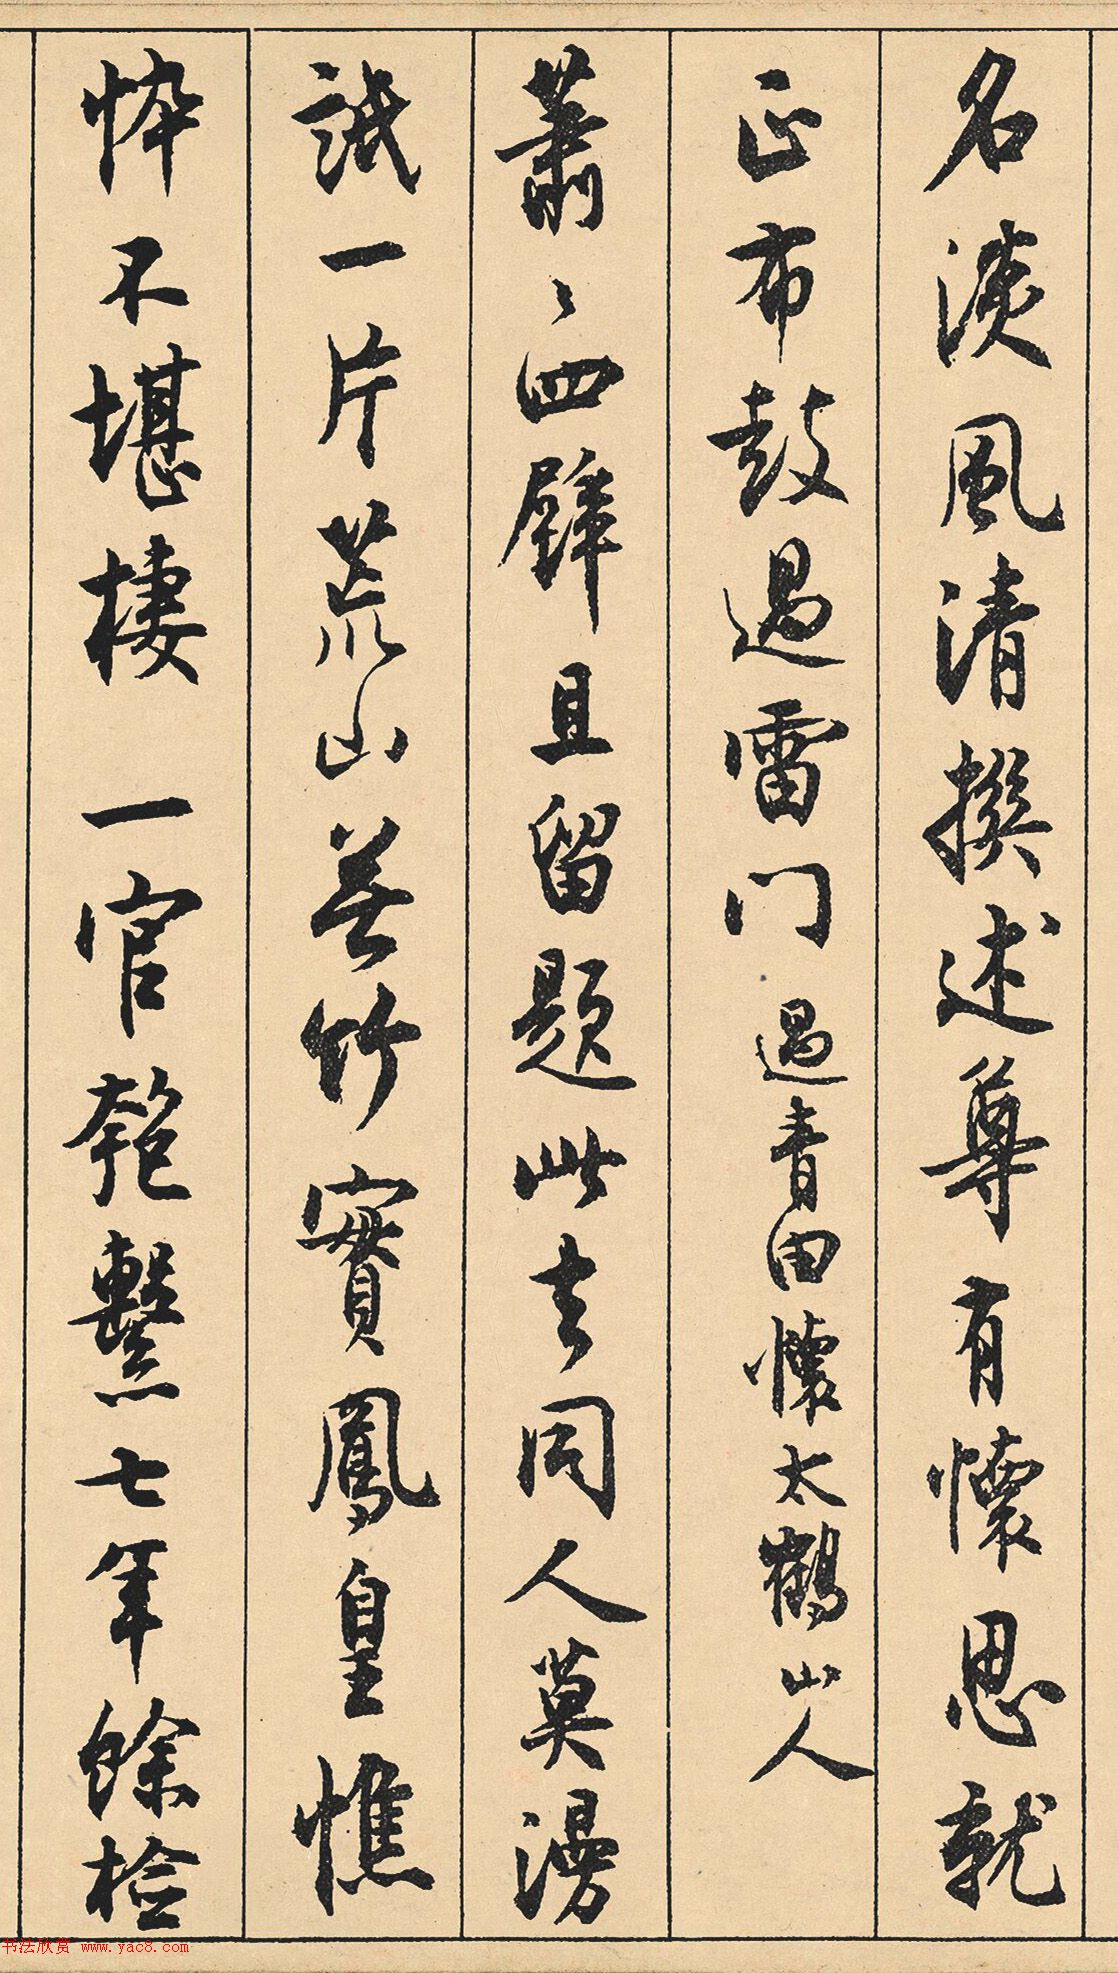 名淡風清撰述尊有懷思就
正布鼓過雷門過青田懷太鶴山人
蕭〻四壁且留題此去同人莫漫
詆一片荒山無竹實鳳皇憔
悴不堪棲一官匏繫七年餘檢
书法欣赏 www.yac8.com